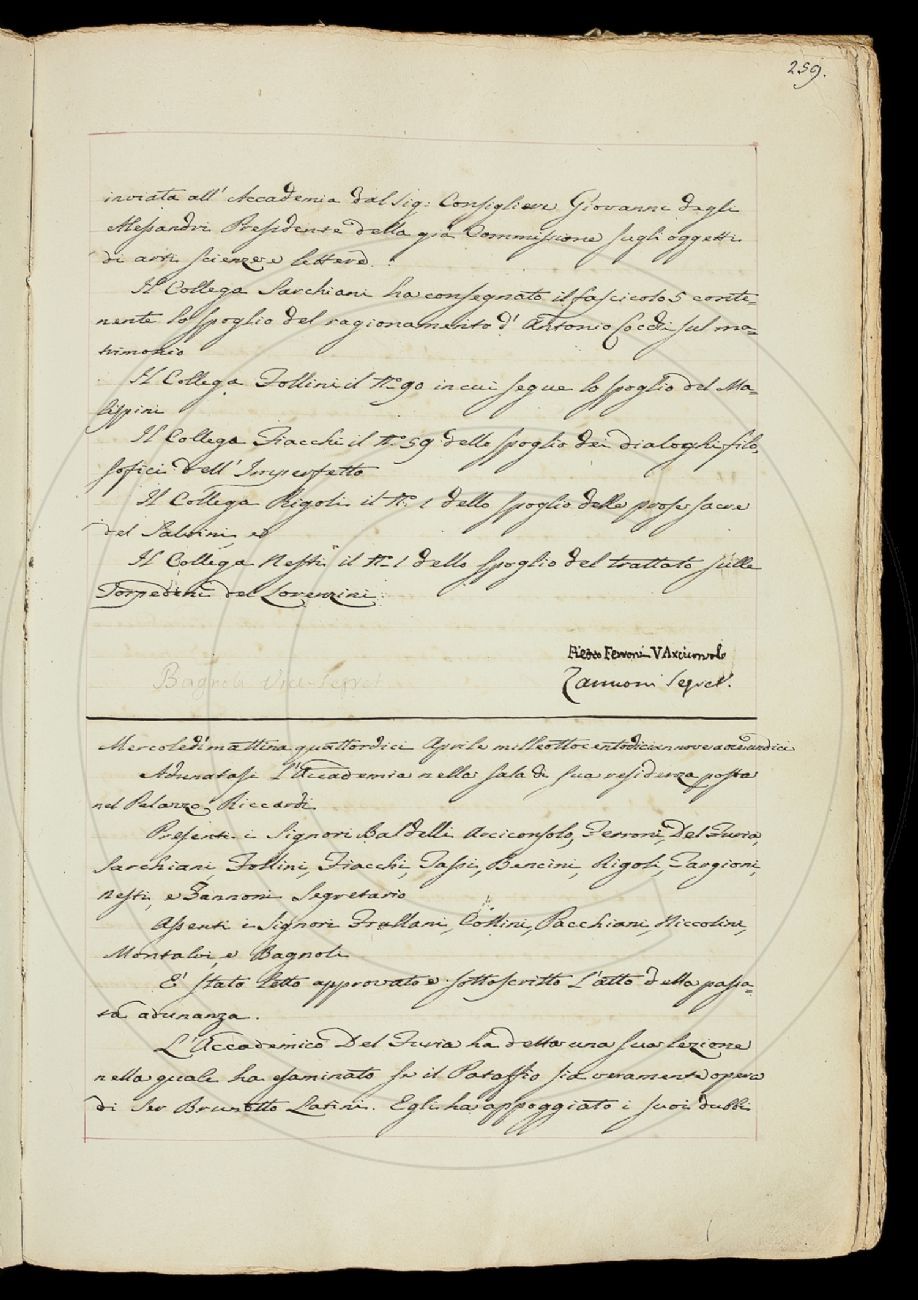 259.
inviata all' Accademia dal Sig: Consigliere Giovanni degli
Alessandri Presidente della già Commissione sugli oggetti
di arti scienze e lettere.
Il Collega Sarchiani ha consegnato il fascicolo 5 conte-
nente lo spoglio del ragionamento d' Antonio Cocchi sul ma-
trimonio
Il Collega Follini il n.º 90 in cui segue lo spoglio del Ma-
lispini
Il Collega Fiacchi il n.º 59 dello spoglio dei dialoghi filo
sofici dell' Imperfetto
Il Collega Rigoli il n.º 1 dello spoglio delle prose sacre
del Salvini, e
Il Collega Nesti il n.º 1 dello spoglio del trattato sulle
Torpedini del Lorenzini.
Pietro Ferroni V. Arciconsolo
Bagnoli Vice Segret
Zannoni Segret.
Mercoledì mattina quattordici Aprile milleottocentodiciannove a ore undici
Adunatasi l'Accademia nella sala di sua residenza posta
nel Palazzo Riccardi
Presenti i Signori Baldelli Arciconsolo, Ferroni, Del Furia,
Sarchiani, Follini, Fiacchi, Tassi, Bencini, Rigoli, Targioni,
Nesti, e Zannoni Segretario
Assenti i Signori Frullani, Collini, Pacchiani, Niccolini,
Montalvi, e Bagnoli
E' stato letto approvato e sottoscritto l'atto della passa-
ta adunanza.
L'Accademico Del Furia ha detta una sua lezione
nella quale ha esaminato se il Pataffio sia veramente opera
di Ser Brunetto Latini. Egli ha appoggiato i suoi dubbi